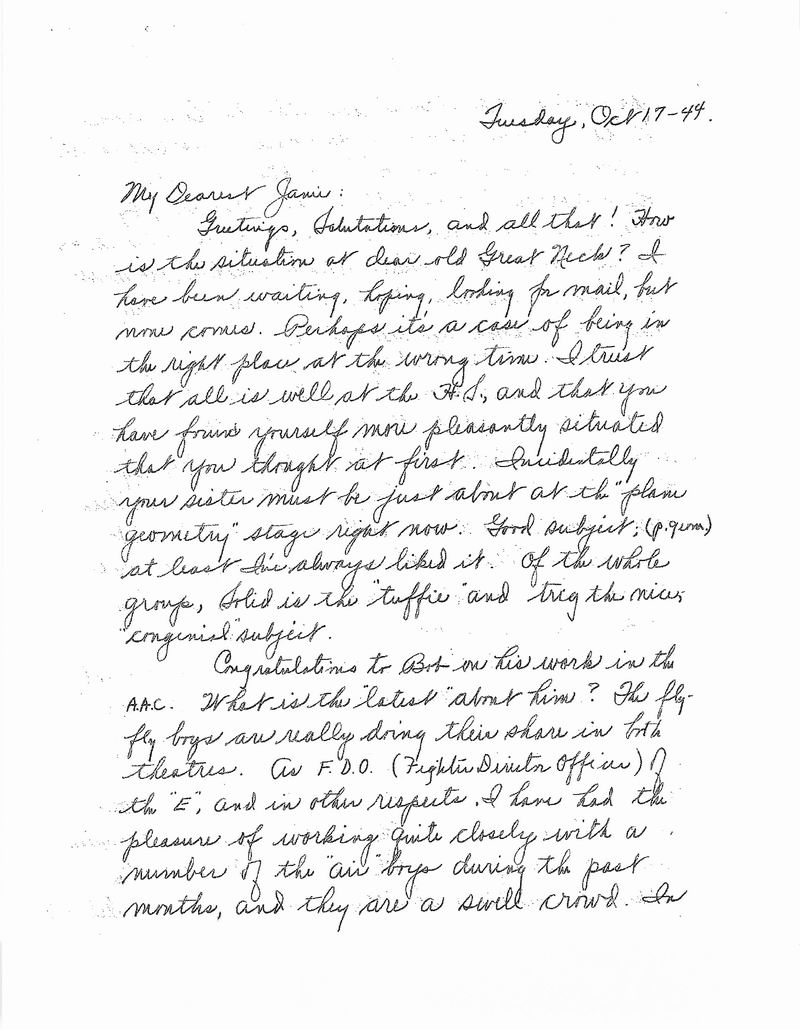 Tuesday, Oct 17-44.
My Dearest Janie:
Greetings, Salutations, and all that! How
is the situation at dear old Great Neck? I
have been waiting, hoping, looking for mail, but
none comes. Perhaps it's a case of being in
the right place at the wrong time. I trust
that all is well at the H.S., and that you
have found yourself more pleasantly situated
that you thought at first. Incidentally
your sister must be just about at the "plane
geometry" stage right now. Good subject; (p.geom)
at least I've always liked it. Of the whole
group, Solid is the "tuffie" and trig the nice,
"congenial" subject.
Congratulations to Bob on his work in the
A.A.C. What is the "latest" about him? The fly-
fly boys are really doing their share in both
theatres. As F.D.O. (Fighter Director Officer) of
the "E", and in other respects, I have had the
pleasure of working quite closely with a
number of the "air" boys during the past
months, and they are a swell crowd. In